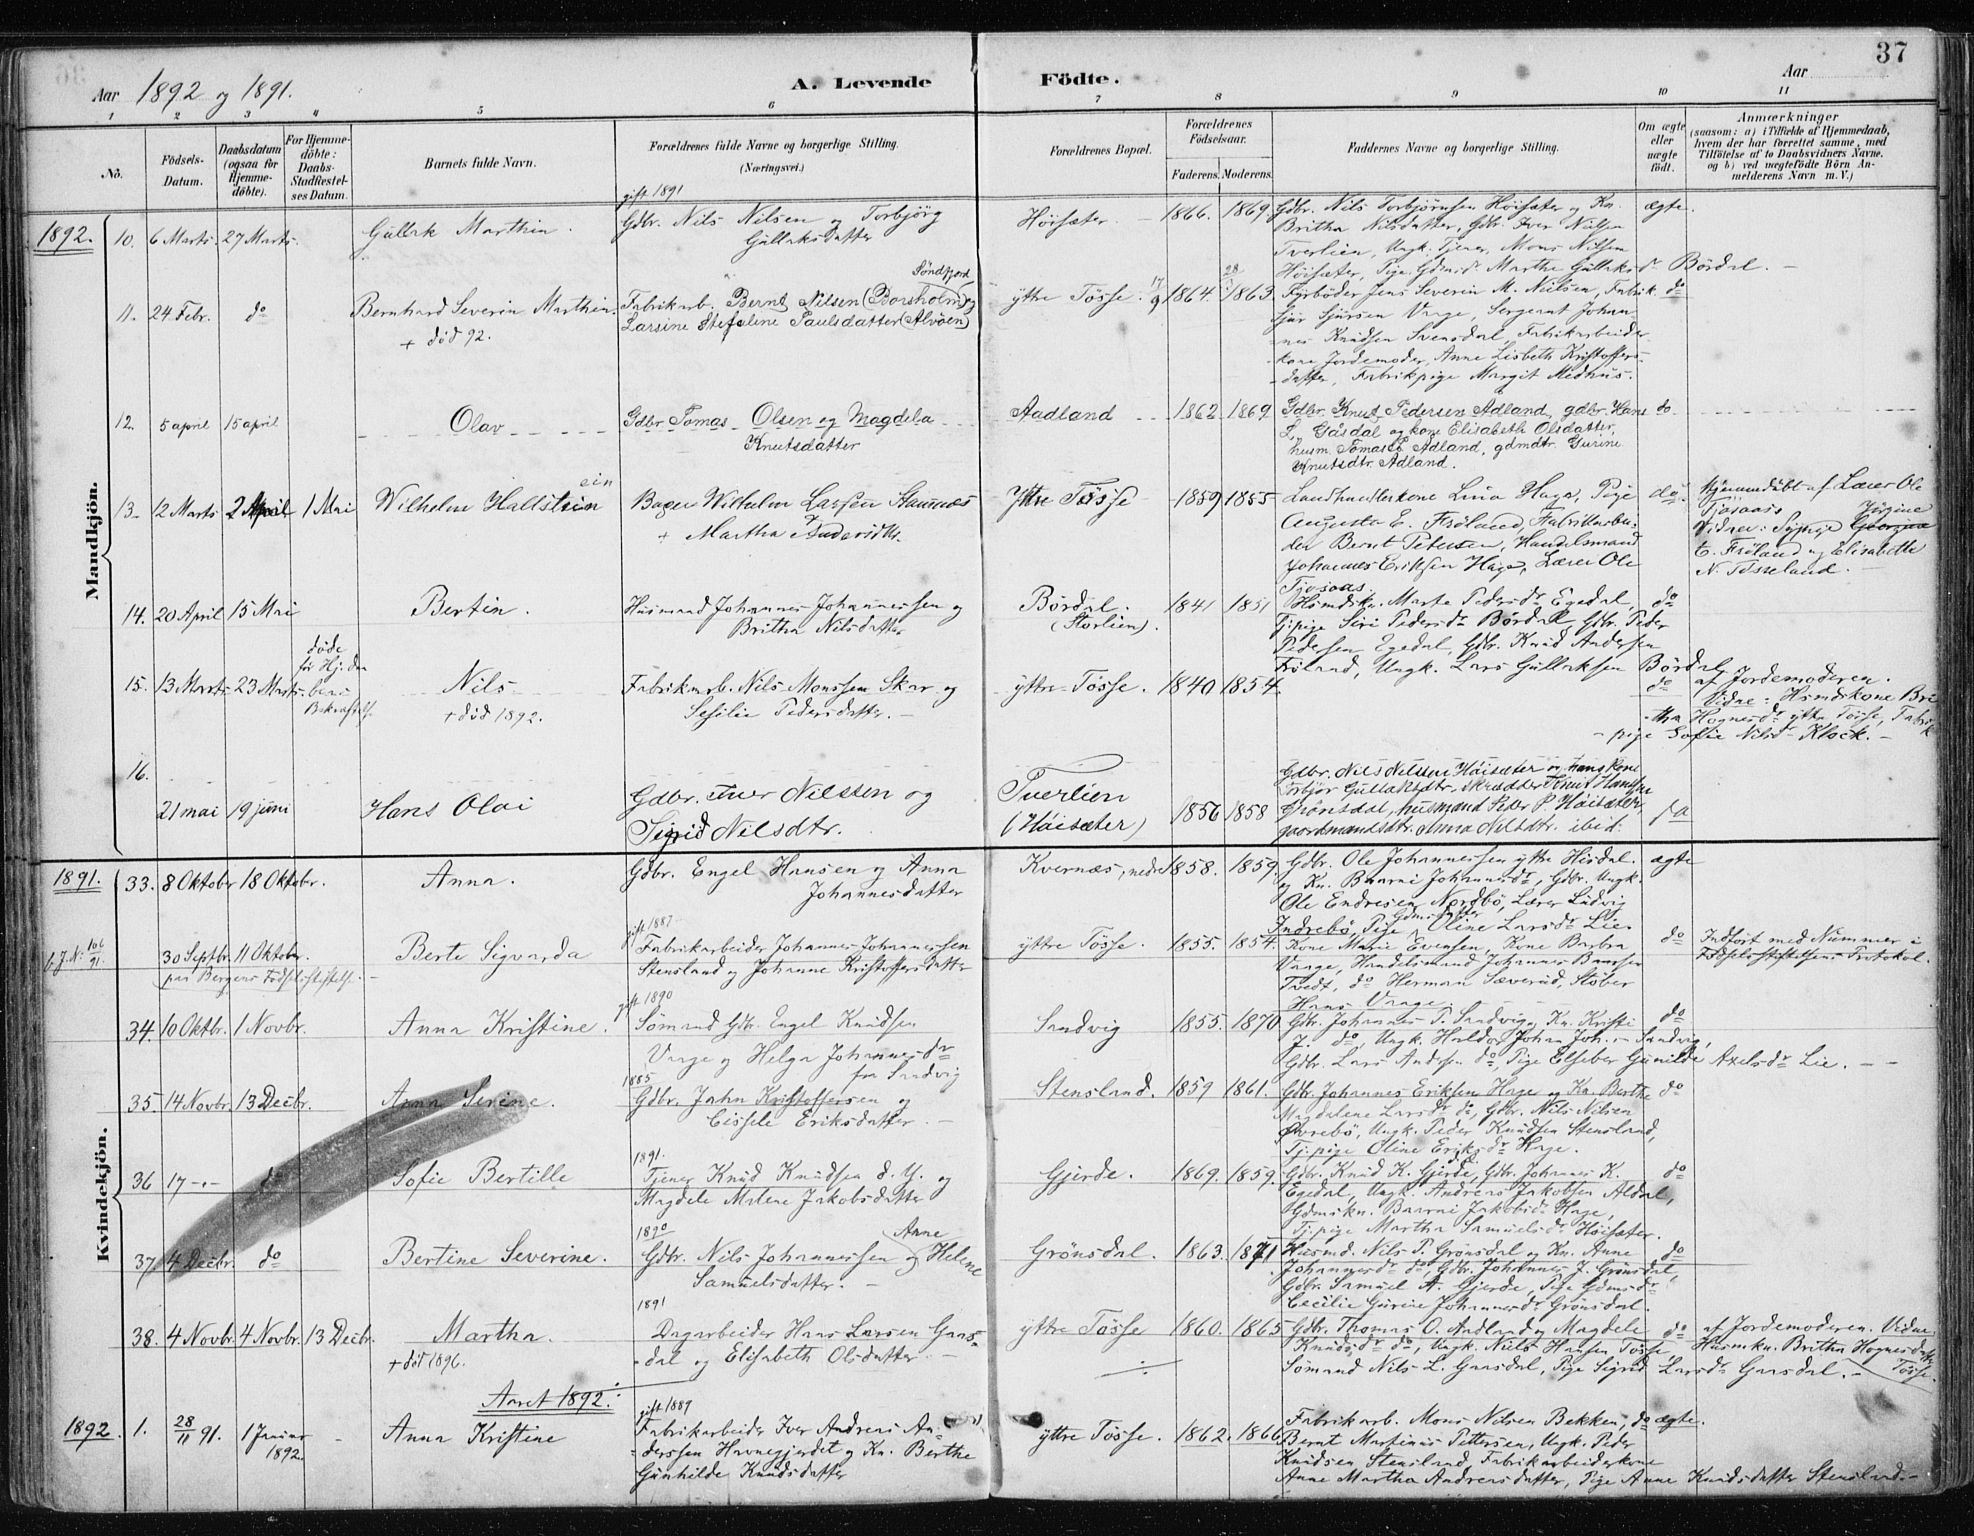 37
Aar 1892 og 1891.
A. Levende Födte.
Aar
1 2 3 4 5 6 7 8 9 10 11
No.
Födsels-Datum.
Daabsdatum (ogsaa for Hjemme-döbte).
For Hjemme-döbte: Daabs-Stadfæstel-ses Datum.
Barnets fulde Navn.
Forældrenes fulde Navne og borgerlige Stilling. (Næringsvei.)
Forældrenes Bopæl.
Forældrenes Födselsaar.
Faderens. Moderens.
Faddernes Navne og borgerlige Stilling.
Om ægte eller uægte födt.
Anmærkninger (saasom: a) i Tilfælde af Hjemmedaab, hvem der har forrettet samme, med Tilföielse af to Daabsvidners Navne, og b) ved uægtefödte Börn Anmelderens Navn m. V.)
Mandkjön.
1892. 10. 6 Marts 27 Marts. Gullak Marthin.
gift 1891
Gdbr. Nils Nilsen og Torbjörg
Gullaksdatter
Höisæter. 1866. 1869
Gdbr. Nils Torbjörnsen Höisæter og Kn. ægte.
Britha Nilsdatter, Gdbr. Iver Nilsen
Tverlien, Ungk. Tjener, Mons Nilsen
Höisæter, Pige Gdmd. Marthe Gullaksdr. Bördal.
11. 24 Febr. do Bernhard Severin Marthin.
+ död 92.
Söndfjord
Fabrikarb. Bernt Nilsen (Borsholm) og
Larsine Stefaline Paulsdatter (Alvöen)
ÿttre Tösse. 17/9 1864. 28 1863.
Fyrböder Jens Severin M. Nilsen, Fabrik. do
Sjur Sjursen Vaage, Sergeant Johan
nes Knudsen Svensdal, Fabrikarbeider
kone Jordemoder, Anne Lisbeth Kristoffers-
datter, Fabrikpige Margit Midhus.
12. 5 april 15 april Olav
Gdbr Tomas Olsen og Magdela
Knutsdatter
Aadland 1862 1869
Gdbr. Knut Pedersen Adland, gdbr. Hans do
L. Gåsdal og kone Elisabeth Olsdatter,
husm. Tomas P. Adland, gdmdtr. Gurine
Knutsdtr. Adland.
13. 12 Marts 2 April 1 Mai Wilhelm Hallstein
ein
Bager Wilhelm Larsen Stamnes
+ Martha Andersdtr.
Yttre Tösse 1859 1855
Landhandlerkone Lina Hage, Pige do.
Augusta E. Fröland, Fabrikarbei-
der Bernt Petersen, Handelsmand
Johannes Eriksen Hage, Lærer Ole
Tjosaas.
Hjemmedöbt af Lærer Ole
Tjosaas Jörgine
Vidner: Sypige Georgina
E. Fröland og Elisabethe
N. Tösseland.
14. 20 April 15 Mai Bertin.
Husmand Johannes Johannessen og
Britha Nilsdatter
Bördal. (Storlien). 1841 1851
Husmdskn. Marte Pedersdr. Egedal, do
Tj.pige Siri Pedersdr Bördal, Gdbr. Peder
Pedersen Egedal, Gdbr. Knud Andersen
Fröland, Ungk. Lars Gullaksen Bördal.
15. 13 Marts 23 Marts.
döde
för Hj. da
Bekræftels.
Nils
+ död 1892.
Fabrikarb. Nils Monssen Skar og
Sesilie Pedersdatter.
ÿttre Tösse. 1840 1854 do
af Jordemoderen.
Vidne: Husmdskone Bri
tha Hognesdr. ÿttre Tösse, Fabrik
pige Sofie Nilsdr. Klock.
16. 21 mai 19 juni Hans Olai
Gdbr. Iver Nilssen og
Sigrid Nilsdtr.
Tverlien
(Höisæter) 1856 1858
Gdbr. Nils Nilssen Höisæter og hans kone
Torbjör Gullaksdtr. skrædder Knut Hansen
Grönsdal, husmand Peter P. Höisæter,
gaardmandsdtr. Anna Nilsdtr. ibid.
Kvindekjön.
1891. 33. 8 Oktober 18 Oktober. Anna.
Gdbr. Engel Hansen og Anna
Johannesdatter
Kvernæs, nedre 1858. 1859.
Gdbr. Ole Johannessen ÿttre Hisdal. ægte
og Kn. Baarni Johannesdr, Gdbr. Ungk.
Ole Endresen Nordbö, Lærer Ludvig
Indrebö, Pige Oline Larsdr Lie.
30 Septbr. 11 Oktober. Berte Sigvarda
paa Bergens Födselsstiftelse.
gift 1887
Fabrikarbeider Johannes Johannessen
Stensland og Johanne Kristoffersdatter
ÿttre Tösse. 1855. 1854.
Kone Marie Evensen, Kone Barbra do
Vaage, Handelsmand Johannes Baarsen
Tvedt, do Herman Sæveröd, Stöber
Hans Vaage.
Indfört med Nummer i
Födselsstiftelsens Protokol.
34. 10 Oktbr. 1 Novbr. Anna Kristine.
gift 1890
Sömand Gdbr. Engel Knudsen
Vaage og Helga Johannesdr
fra Sandvig
Sandvig 1855. 1870
Gdbr. Johannes T. Sandvig, Kn. Kristi do
J. do, Ungk. Haldor Johan Joh. Sandvig,
Gdbr. Lars Andersen do, Pige Elseber Gunilde Axelsdr Lie.
35. 14 Novbr. 13 Decbr. Anna Serine.
1885
Gdbr. John Kristoffersen og
Cissele Eriksdatter.
Stensland. 1859 1861.
Gdbr. Johannes Eriksen Hage og Kn. Berthe do
Magdalene Larsdr do, Gdbr. Nils Nilsen
Övrebö, Ungk. Peder Knudsen Stensland,
Tj.pige Oline Eriksdr Hage.
36 17 do Sofie Bertille
1891.
Tjener Knud Knudsen d. Y. og
Magdele Malene Jakobsdatter
Gjerde. 1869. 1859.
Gdbr. Knud K. Gjerde, Gdbr. Johannes K. do
Egedal, Ungk. Andreas Jakobsen Aldal,
Gdmskn. Baarni Jakobsdr Hage,
Tj.pige Martha Samuelsdr Höisæter.
37 4 Decbr. do Bertine Severine.
1890
Anne
Gdbr. Nils Johannessen og Helene
Samuelsdatter.
Grönsdal. 1863. 1871
Husmd. Nils P. Grönsdal og Kn. Anne do
Johannesdr do, Gdbr. Johannes J. Grönsdal,
Gdbr. Samuel A. Gjerde, Pige Gdmdsdr
Cecilie Gurine Johannesdr Grönsdal.
38. 4 Novbr. 4 Novbr. 13 Decbr. Martha.
+ död 1896.
1891
Dagarbeider Hans Larsen Gaas-
dal og Elisabeth Olsdatter.
ÿttre Tösse 1860. 1865
Gdbr. Thomas O. Aadland og Magdele do
Knudsdr do, Ungk. Nils Hansen Tösse,
Sömand Nils L. Gaasdal, Pige Sigrid Larsdr Gaasdal.
af Jordemoderen. Vidne
Husmkn. Britha Hognesdatter
Tösse.
Aaret 1892:
1892 1. 28/11 91. 1 Januar 1892. Anna Kristine
gift 1889
Fabrikarbeider Iver Andreas An-
derssen Havnegjerdet og Kn. Berthe
Gunhilde Knudsdatter
ÿttre Tösse. 1862. 1866
Fabrikarb. Mons Nilsen Bekken, do ægte.
Bernt Martinus Pettersen, Ungk. Peder
Knudsen Stensland, Fabrikarbeiderkone
Anne Martha Andreasdatter, Pige Anne Knudsdatter Stensland.